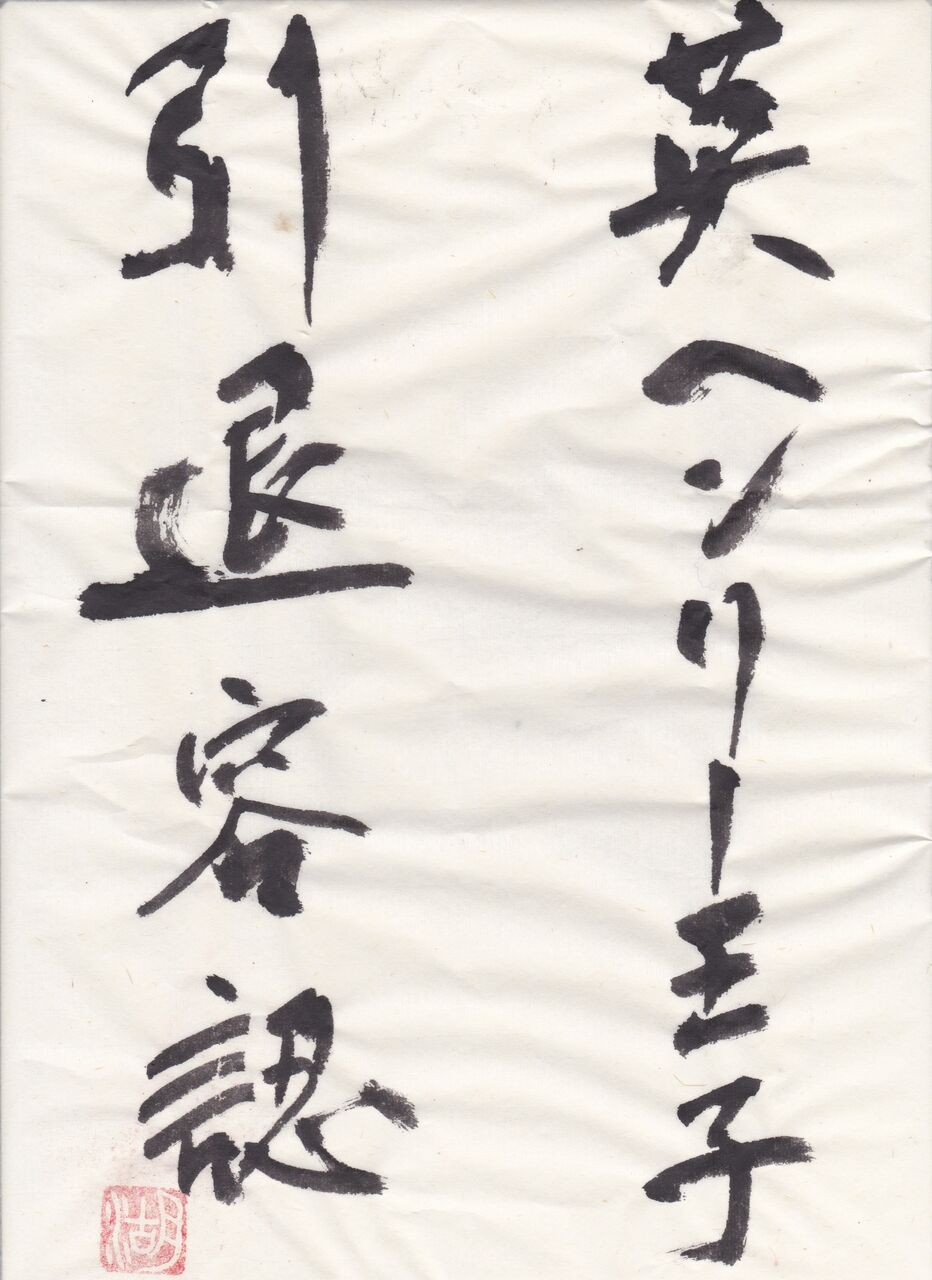 英ヘンリー王子
引退容認
湖